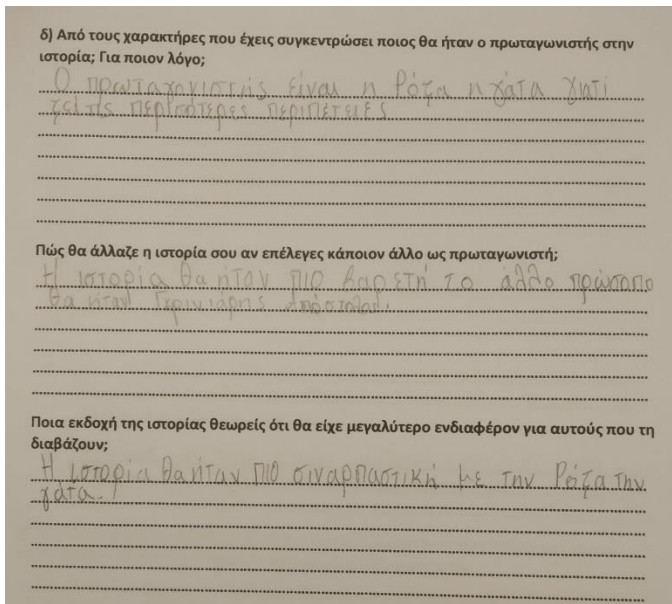 δ) Από τους χαρακτήρες που έχεις συγκεντρώσει ποιος θα ήταν ο πρωταγωνιστής στην
ιστορία; Για ποιον λόγο;
Ο πρωταγονιστής είναι η Ρόζα η γάτα γιατί
ζεί τις περισότερες περιπέτειες
Πώς θα άλλαζε η ιστορία σου αν επέλεγες κάποιον άλλο ως πρωταγωνιστή;
Η ιστορία θα ήταν πιο βαρετή το άλλο πρόσωπο
θα ήταν
Ποια εκδοχή της ιστορίας θεωρείς ότι θα είχε μεγαλύτερο ενδιαφέρον για αυτούς που τη
διαβάζουν;
Η ιστορία θα ήταν πιο σιναρπαστική με την Ρόζα την
γάτα.!